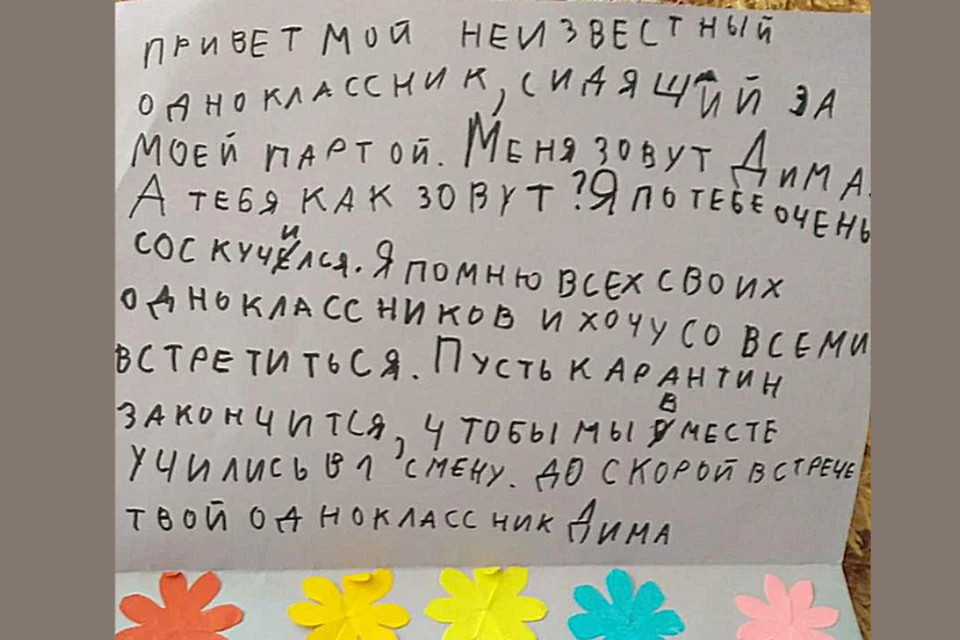 ПРИВЕТ МОЙ НЕИЗВЕСТНЫЙ
ОДНОКЛАССНИК, СИДЯЩИЙ ЗА
МОЕЙ ПАРТОЙ. МЕНЯ ЗОВУТ ДИМА.
А ТЕБЯ КАК ЗОВУТ? Я ПО ТЕБЕ ОЧЕНЬ
СОСКУЧИЛСЯ. Я ПОМНЮ ВСЕХ СВОИХ
ОДНОКЛАССНИКОВ И ХОЧУ СО ВСЕМИ
ВСТРЕТИТЬСЯ. ПУСТЬ КАРАНТИН
ЗАКОНЧИТСЯ, ЧТОБЫ МЫ ВМЕСТЕ
УЧИЛИСЬ В 1 СМЕНУ. ДО СКОРОЙ ВСТРЕЧЕ
ТВОЙ ОДНОКЛАССНИК ДИМА